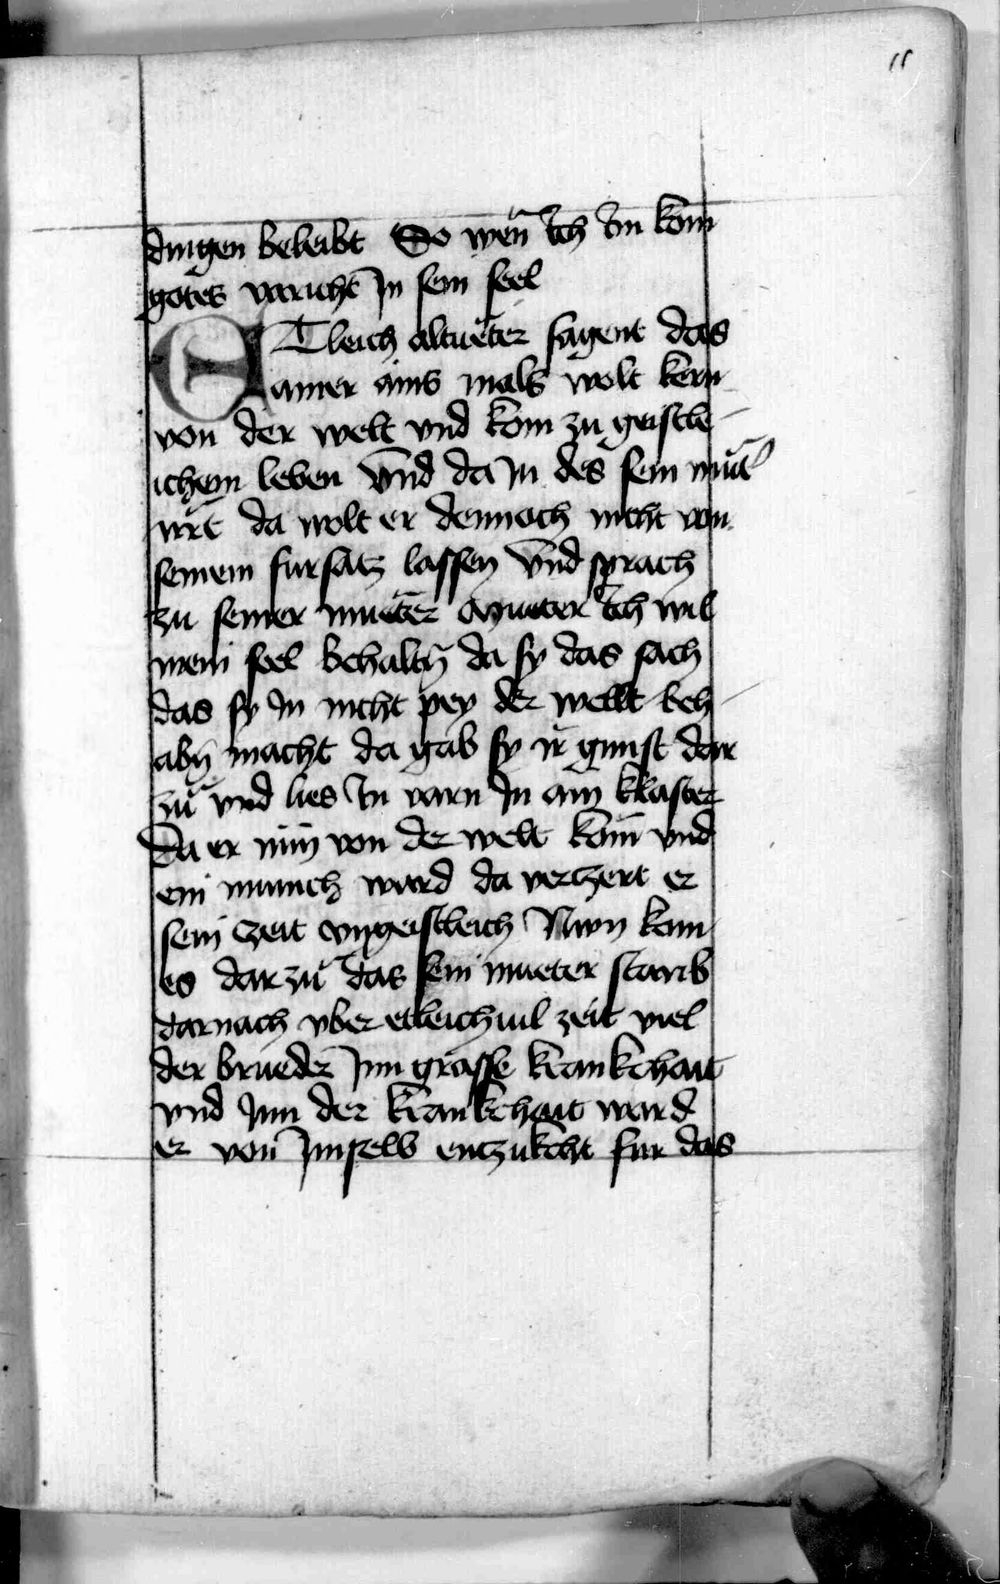 11
dingen beleibt So wen ich im kom
gotes voricht In sein seel
ETleich altueter sagent das
ainer ains mals wolt kern
von der welt vnd kom zu geistle
ichem leben Vnd da in des sein muet
irrt da wolt er dennoch nicht von
seinem fursatz lassen Vnd sprach
zu seiner mueter Mueter ich wil
mein seel behaltn da sy das sach
das sy In nicht pey der wellt beh
abn macht da gab sy ir gunst dar
zu vnd lies In varn In ain kloster
Da er nun von der welt kom vnd
ein munich ward da verczert er
sein czeit vngeistleich Nwn kam
es dar zu das sein mueter starib
darnach vber etleich wil zeit viel
der brueder Inn grosse krankchait
vnd Inn der krankchait ward
er von Im selb enczukcht fur das